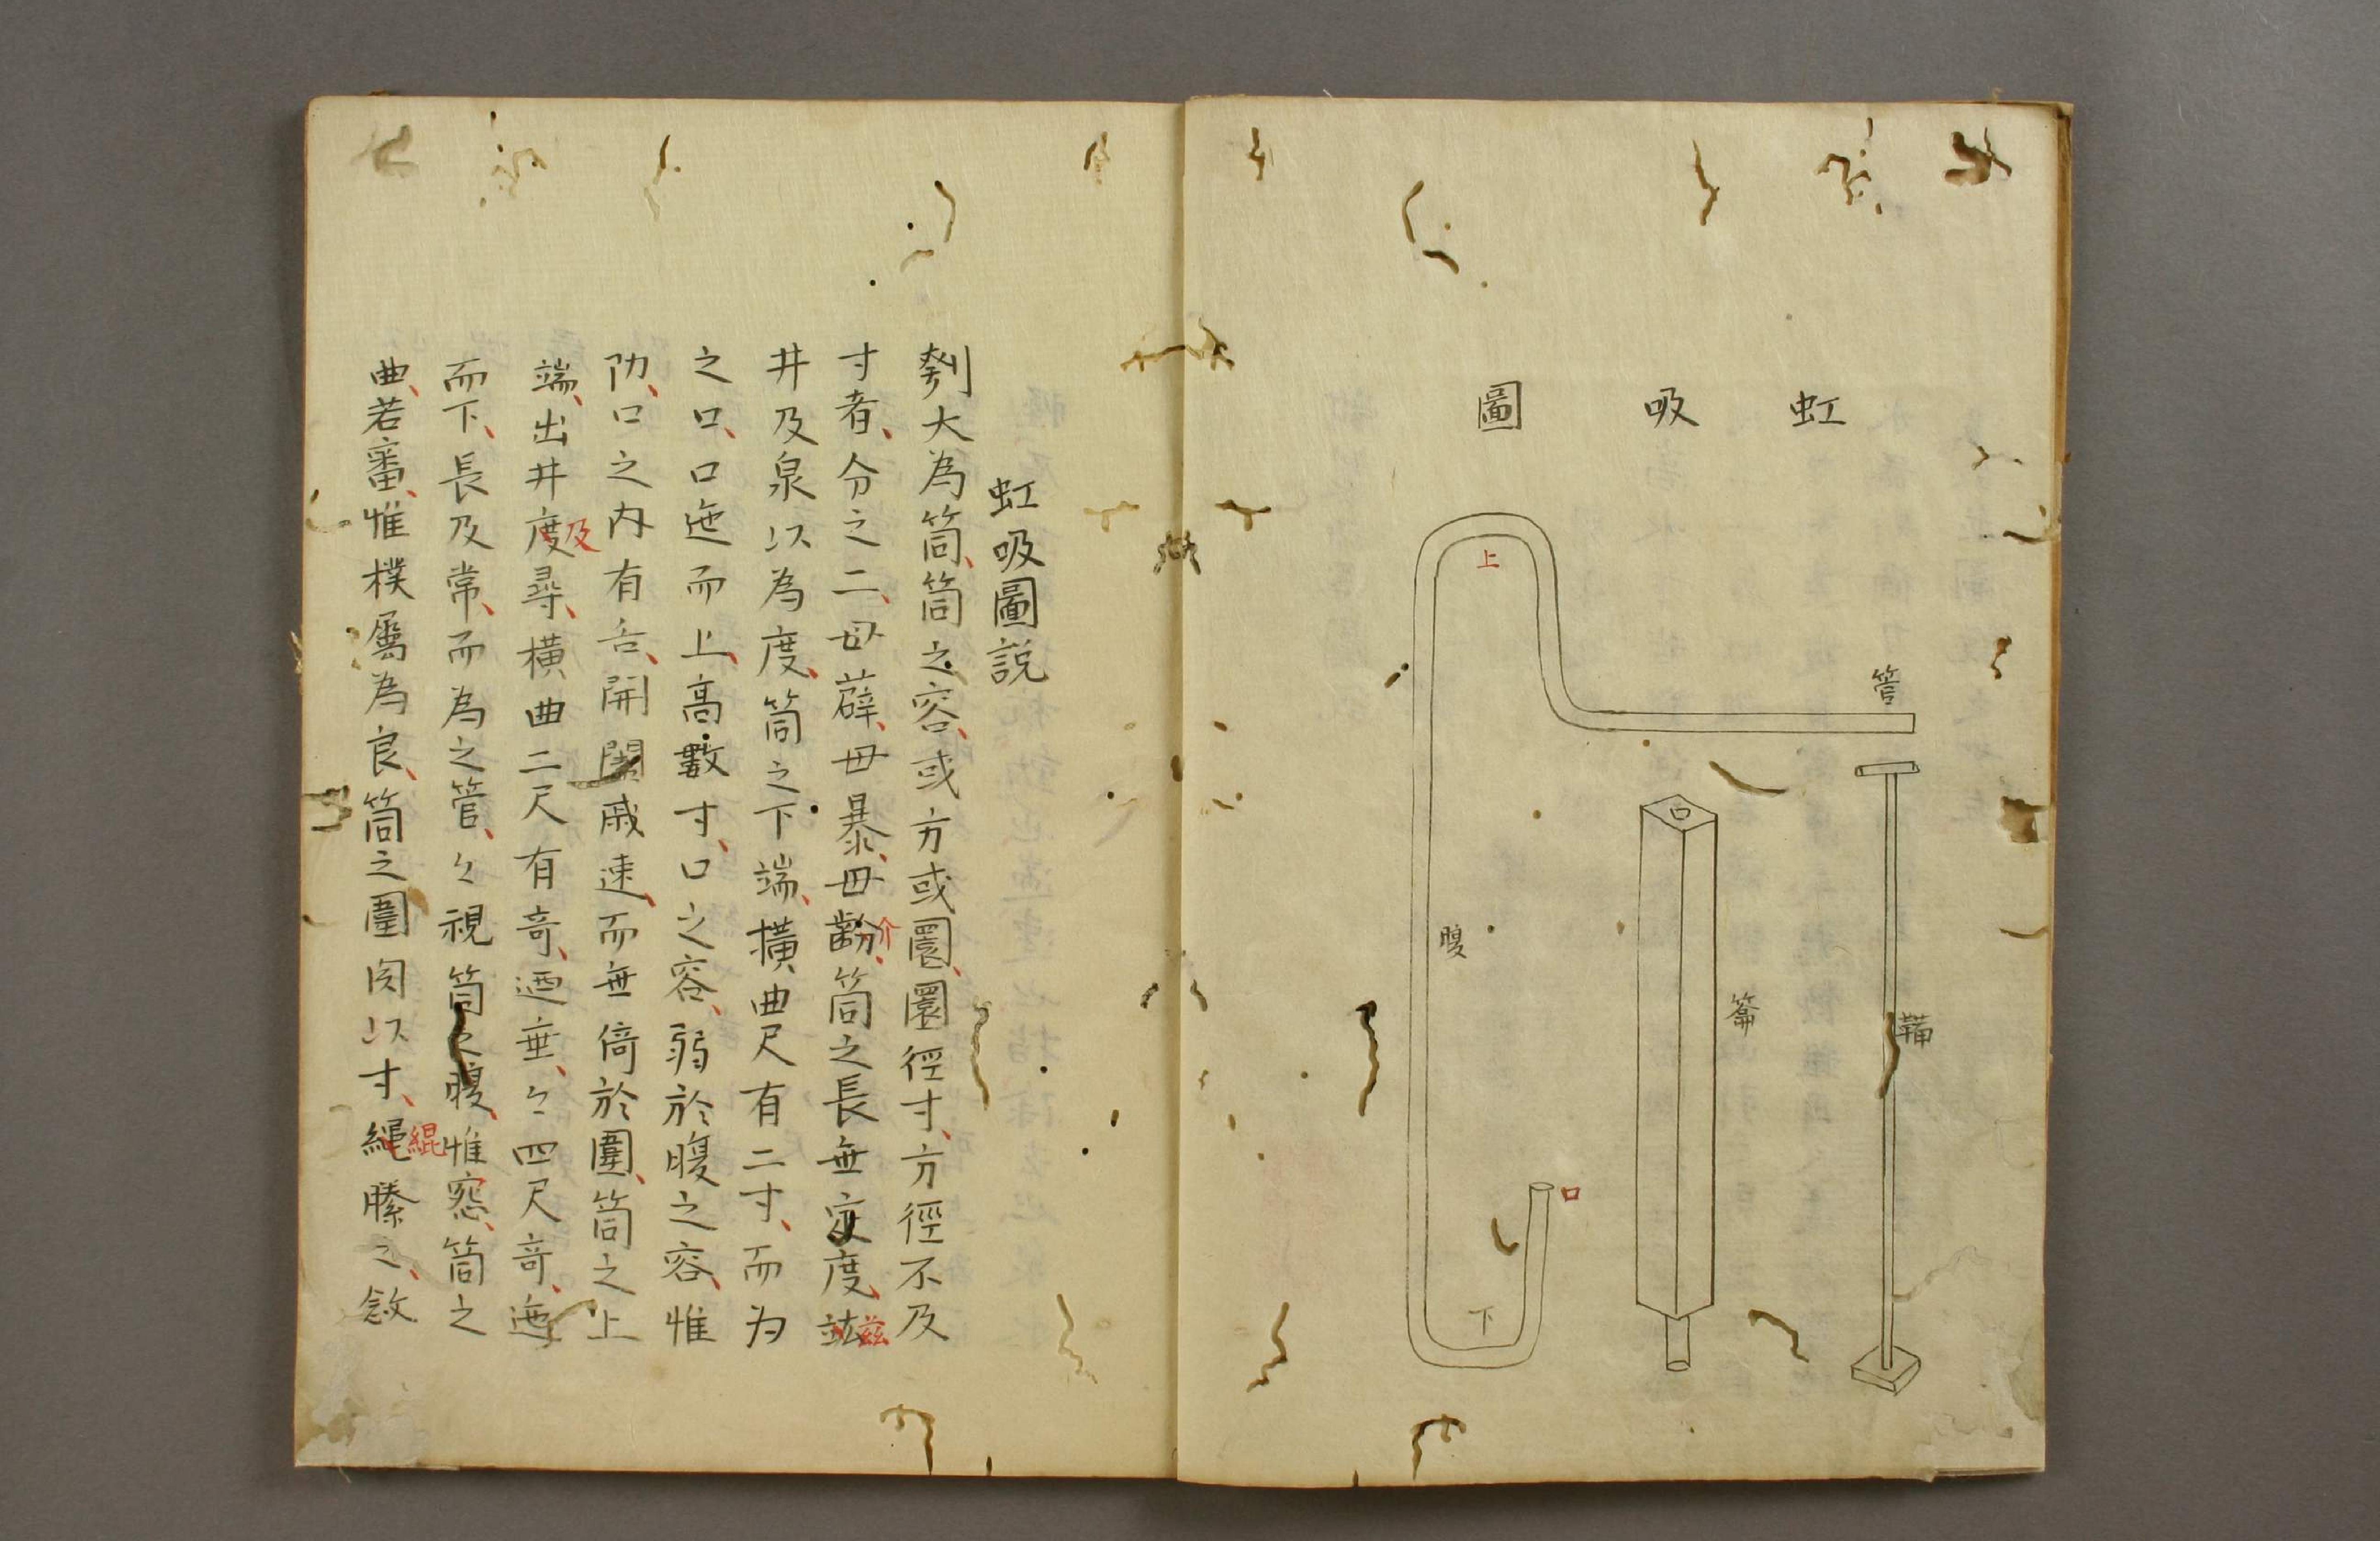 虹吸圖
管
上
鞴
籥
腹
口
下
虹吸圖説
刳大為筒、筒之容、或方或圜、圜徑寸、方徑不及
寸者、分之二、毋薜、毋暴、毋齘、介筒之長無定度、竑兹
井及泉以為度、筒之下端、橫曲尺有二寸、而为
之口、口迤而上、高數寸、口之容、弱於腹之容、惟
仂、口之内有舌、開闔戚速、而無倚於圍、筒之上
端、出井度及尋、橫曲二尺有奇、迺垂、々四尺奇、迤
而下、長及常、而為之管、々視筒之腹、惟窓、筒之
曲、若審、惟樸屬為良、筒之圍固以寸、繩緄縢之、斂